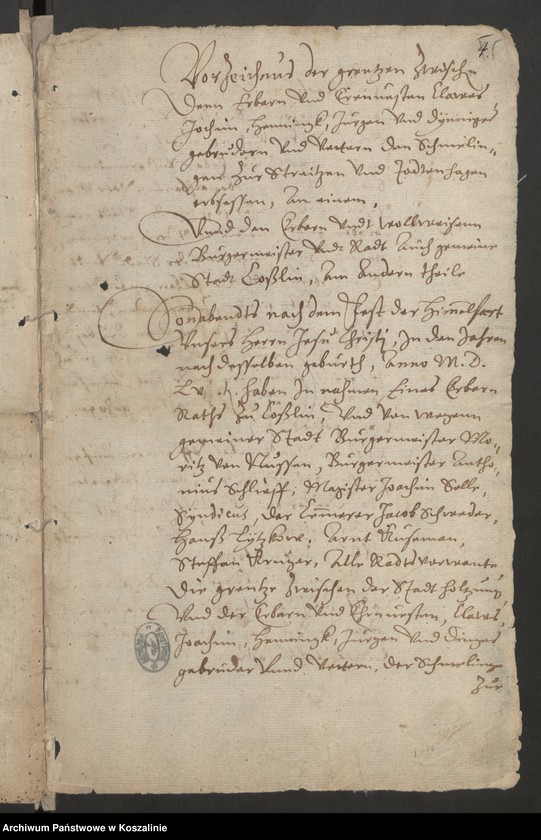 4.
Vorzeichnus der grentzen Zwischen
Denn Erbarn Vnd Ernuesten Clawes,
Jochim, Henningk, Jürgen Vnd Dynnies
gebrudern Vnd Vettern den Schmelin-
gen Zur Streitzen Vnd Todtenhagen
erbsessen, An einem,
Vnnd den Erbarn Vndt Wollweisenn
Bürgermeister Vndt Radt Auch gemeine
Stadt Coßlin, Am Andern theile
Sonabendts nach dem Fest der Himelfart
Vnsers Herrn Jesu Christj, In den Jahren
nach desselben geburth, Anno M. D.
LV. haben In nahmen Eines Erbarn
Raths Zu Coßlin, Vnd Von wegenn
gemeiner Stadt Burgermeister Mo-
ritz Von Nussen, Burgermeister Antho-
nius Schlieff, Magister Joachim Selle,
Syndicus, der Cemmerer Jacob Schweder,
Hanß Lytzkow, Arnt Ruseman,
Steffan Kruger, Alle Radtsverwante
Die grentze Zwischen der Stadt holtzung
Vnd der Erbarn Vnd Ehrnuesten, Clawes,
Joachim, Henningk, Jurgen Vnd Dinnies
gebruder Vnnd Vettern, der Schmelinge
Zur
Archiwum Państwowe w Koszalinie